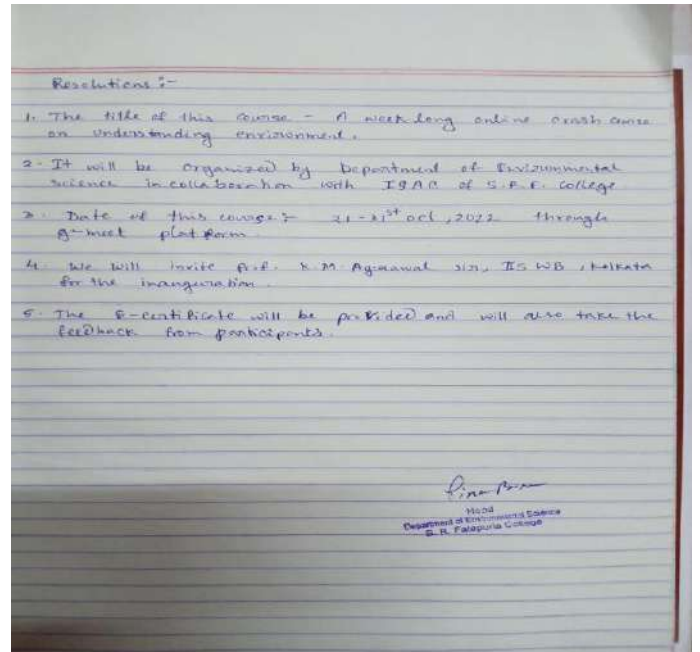 Resolutions :-
1. The title of this course - A week long online crash course
on understanding environment.
2. It will be organized by Department of Environmental
science in collaboration with IQAC of S.R.F. College
3. Date of this course :- 21 - 31st oct, 2022 through
g-meet platform.
4. We will invite Prof. K.M. Agrawal sir, IIS WB, Kolkata
for the inauguration.
5. The E-certificate will be provided and will also take the
feedback from participants.
Head
Department of Environmental Science
S. R. Fatepuria College